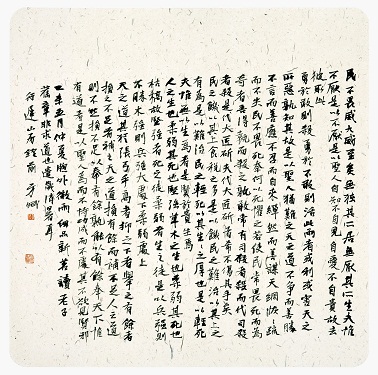 民不畏威大威至矣無狹其所居無厭其所生夫惟
不厭是以不厭是以聖人自知不自見自愛不自貴故去
彼取此
勇於敢則殺勇於不敢則活此兩者或利或害天之
所惡孰知其故是以聖人猶難之天之道不爭而善勝
不言而善應不召而自來繟然而善謀天網恢恢疏
而不失民不畏死奈何以死懼之若使民常畏死而為
奇者吾得執而殺之孰敢常有司殺者殺而代司殺
者殺是代大匠斲夫代大匠斲者希不傷其手矣
民之饑以其上食稅之多是以饑民之難治以其上之
有為是以難治民之輕死以其生生之厚也是以輕死
夫惟無以生為者是賢於貴生焉
人之生也柔弱其死也堅強草木之生也柔弱其死也
枯槁故堅強者死之徒柔弱者生之徒是以兵強則
不勝木強則兵強大處下柔弱處上
天之道其猶張弓乎高者抑之下者舉之有餘者
損之不足者補之天之道損有餘而補不足人之道
則不然損不足以奉有餘孰能以有餘奉天下惟
有道者是以聖人為而不恃功成而不處其不欲見賢邪
五月仲夏窗外微雨細品新茗讀老子
舊章非求道也